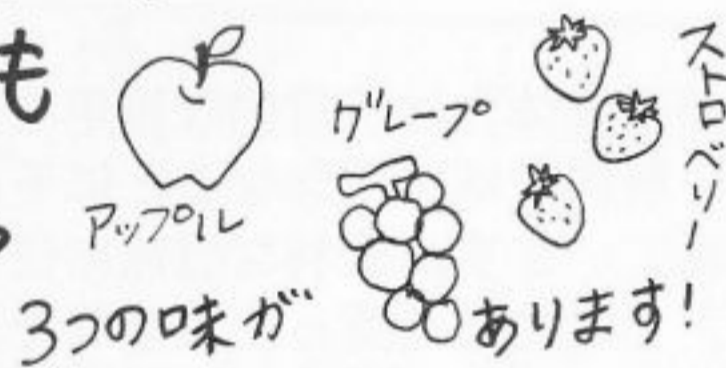 も
アップル
グレープ
ストロベリー
3つの味が
あります!